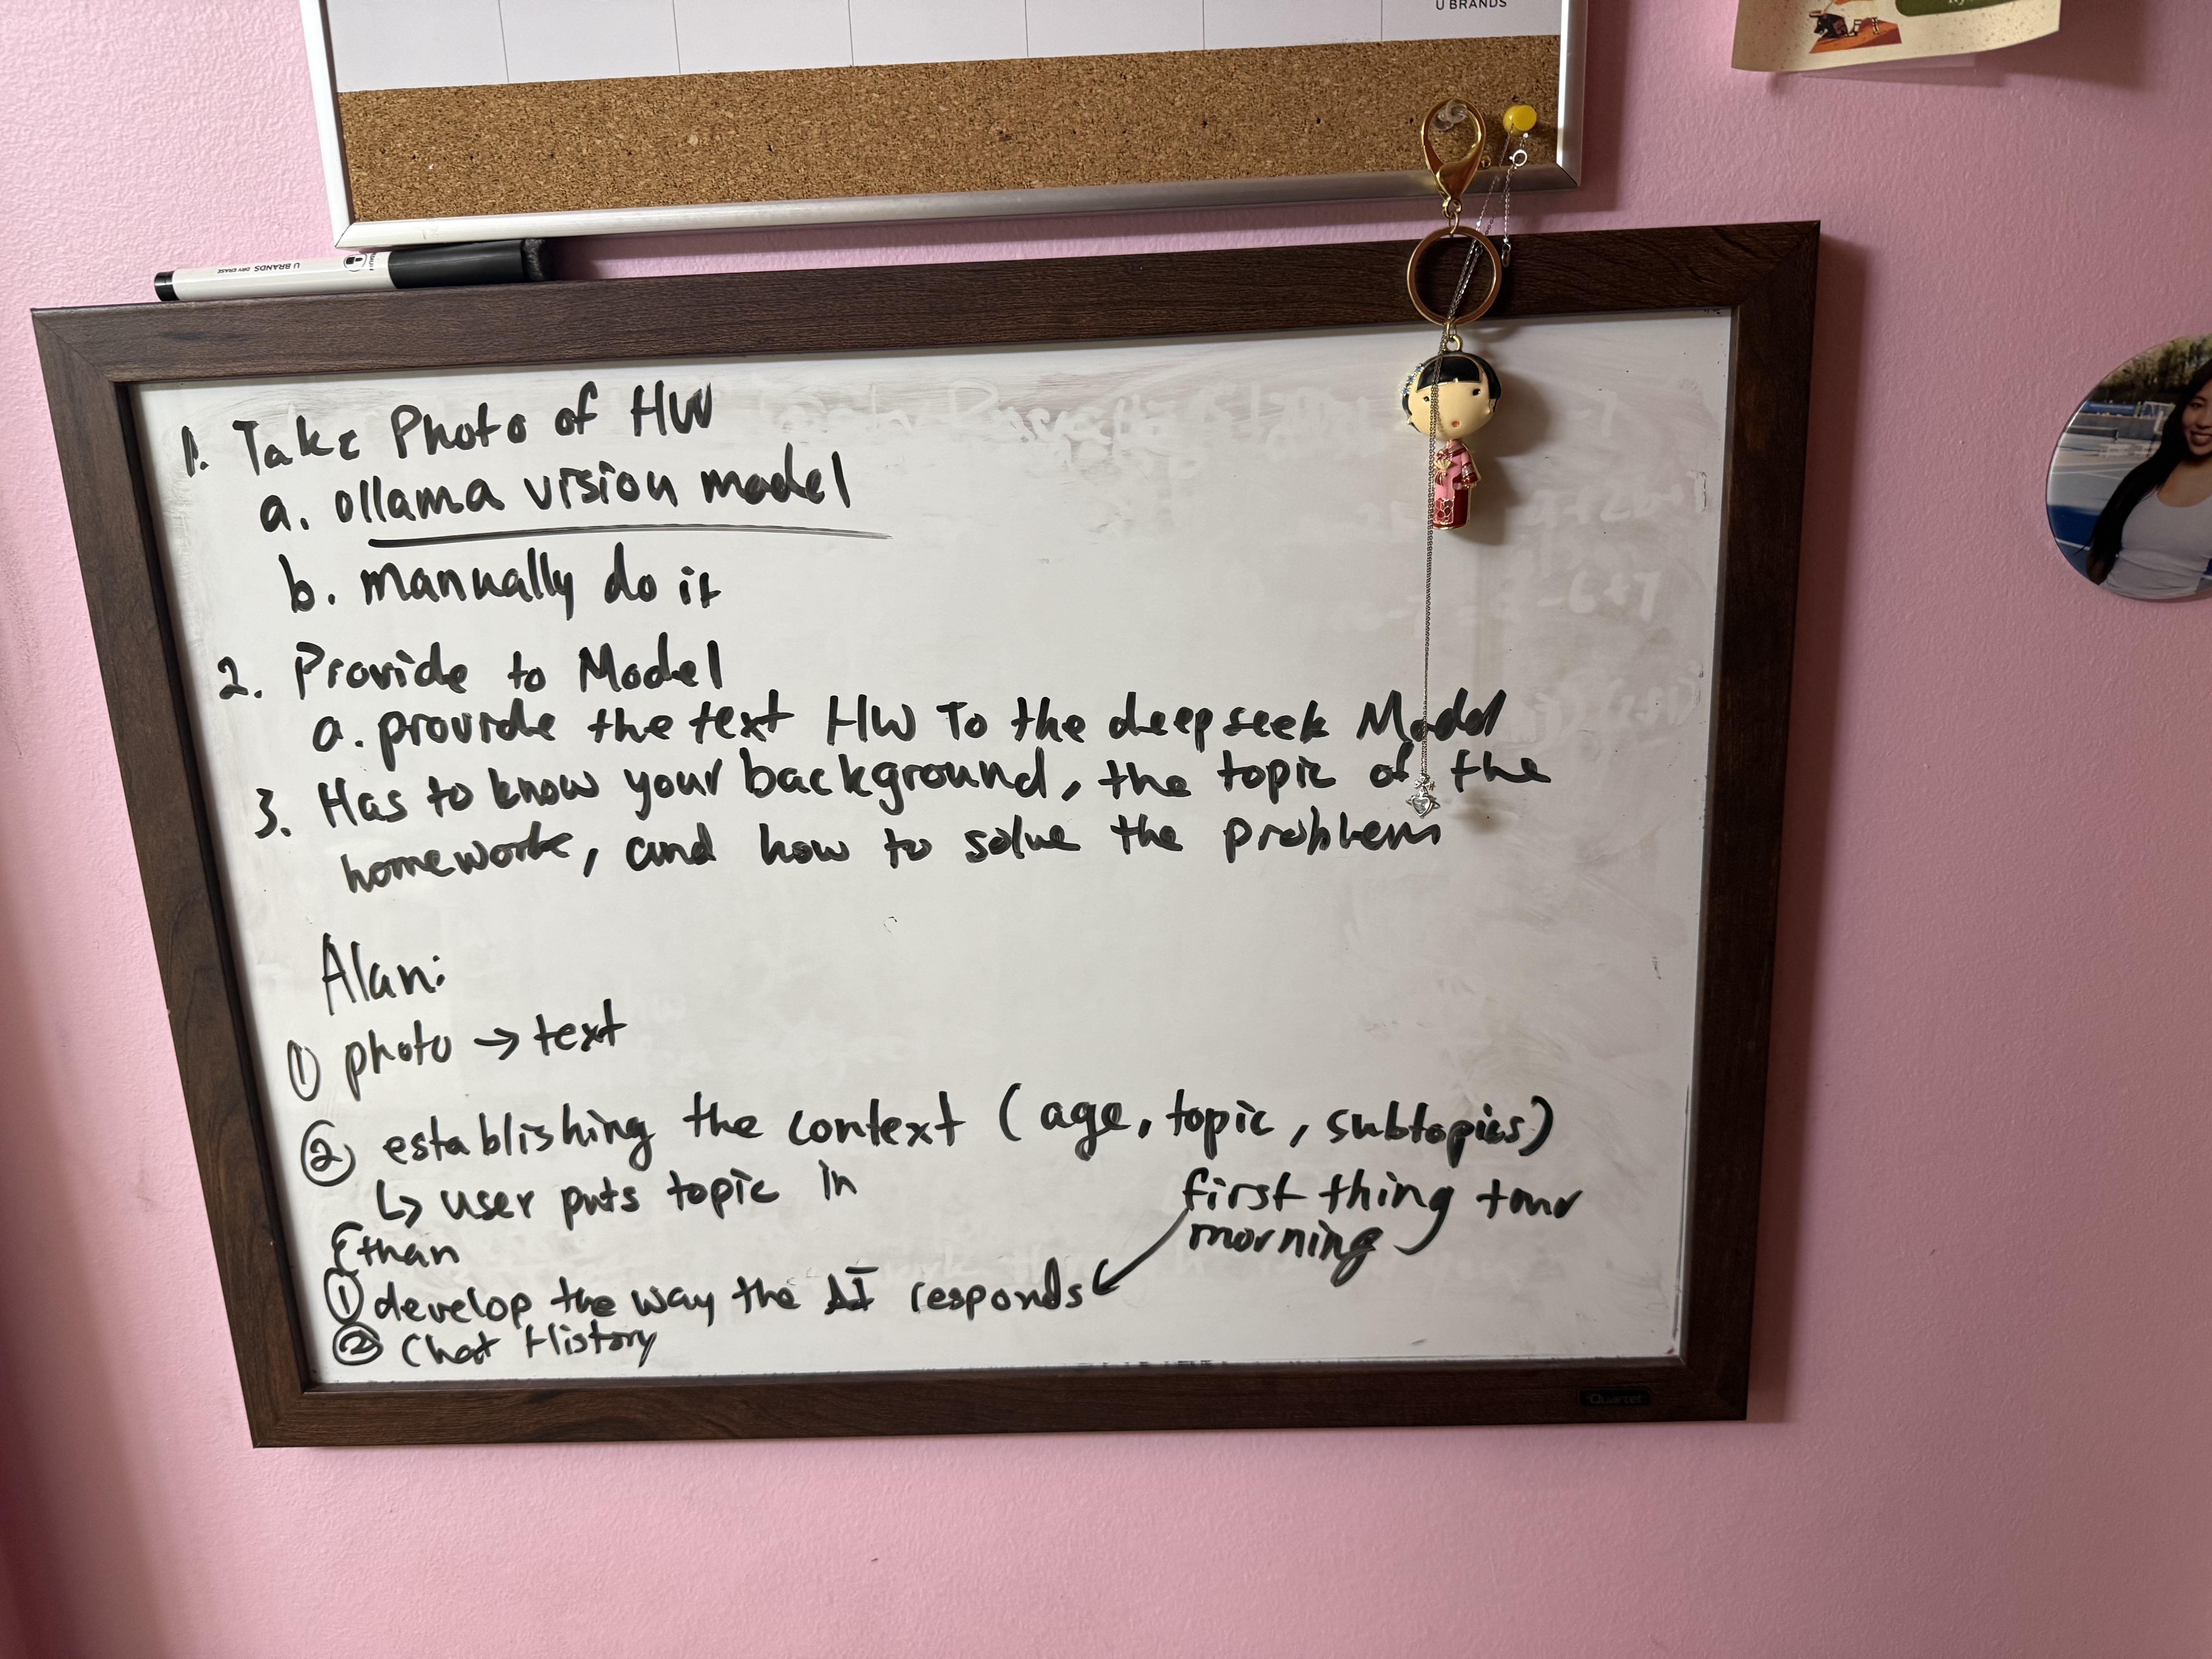 U BRANDS
U BRANDS DRY ERASE
1. Take Photo of HW
a. ollama vision model
b. manually do it
2. Provide to Model
a. provide the text HW To the deepseek Model
3. Has to know your background, the topic of the
homework, and how to solve the problem
Alan:
① photo → text
② establishing the context (age, topic, subtopics)
↳ user puts topic in
first thing tmr
morning
Ethan
① develop the way the AI responds
② Chat History
Quartet